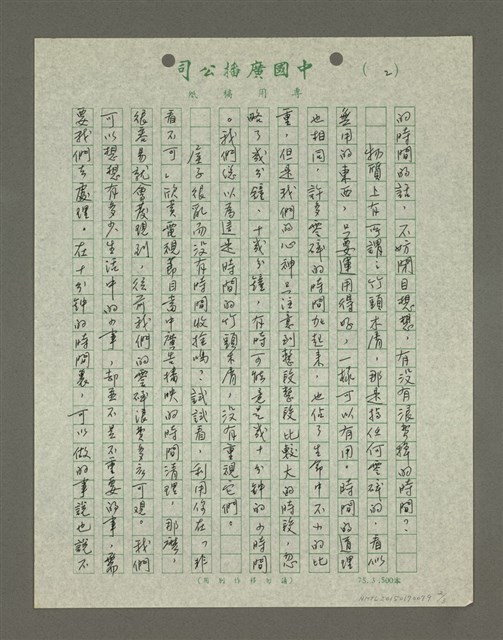 中國廣播公司
(2)
專用稿紙
的時間的話，不妨閉目想想，有沒有浪費掉的時間？
物質上有所謂：竹頭木屑，那是指任何零碎的，看似
無用的東西，只要運用得好，一樣可以有用。時間的道理
也相同，許多零碎的時間加起來，也佔了生命中不少的比
重，但是我們的心神只注意到整段整段比較大的時段，忽
略了幾分鐘、十幾分鐘，有時可能竟是幾十分鐘的少時間
。我們總以為這是時間的竹頭木屑，沒有重視它們。
屋子很亂而沒有時間收拾嗎？試試看，利用你在「非
看不可」欣賞電視節目當中廣告播映的時間清理，那麼，
很容易就會發現到，從前我們的零碎浪費多麼可觀。我們
可以想想有多少生活中的少事，卻並不是不重要的事，需
要我們去處理。在十分鐘的時間裏，可以做的事說也說不
(請勿移作別用)
75.3.500本